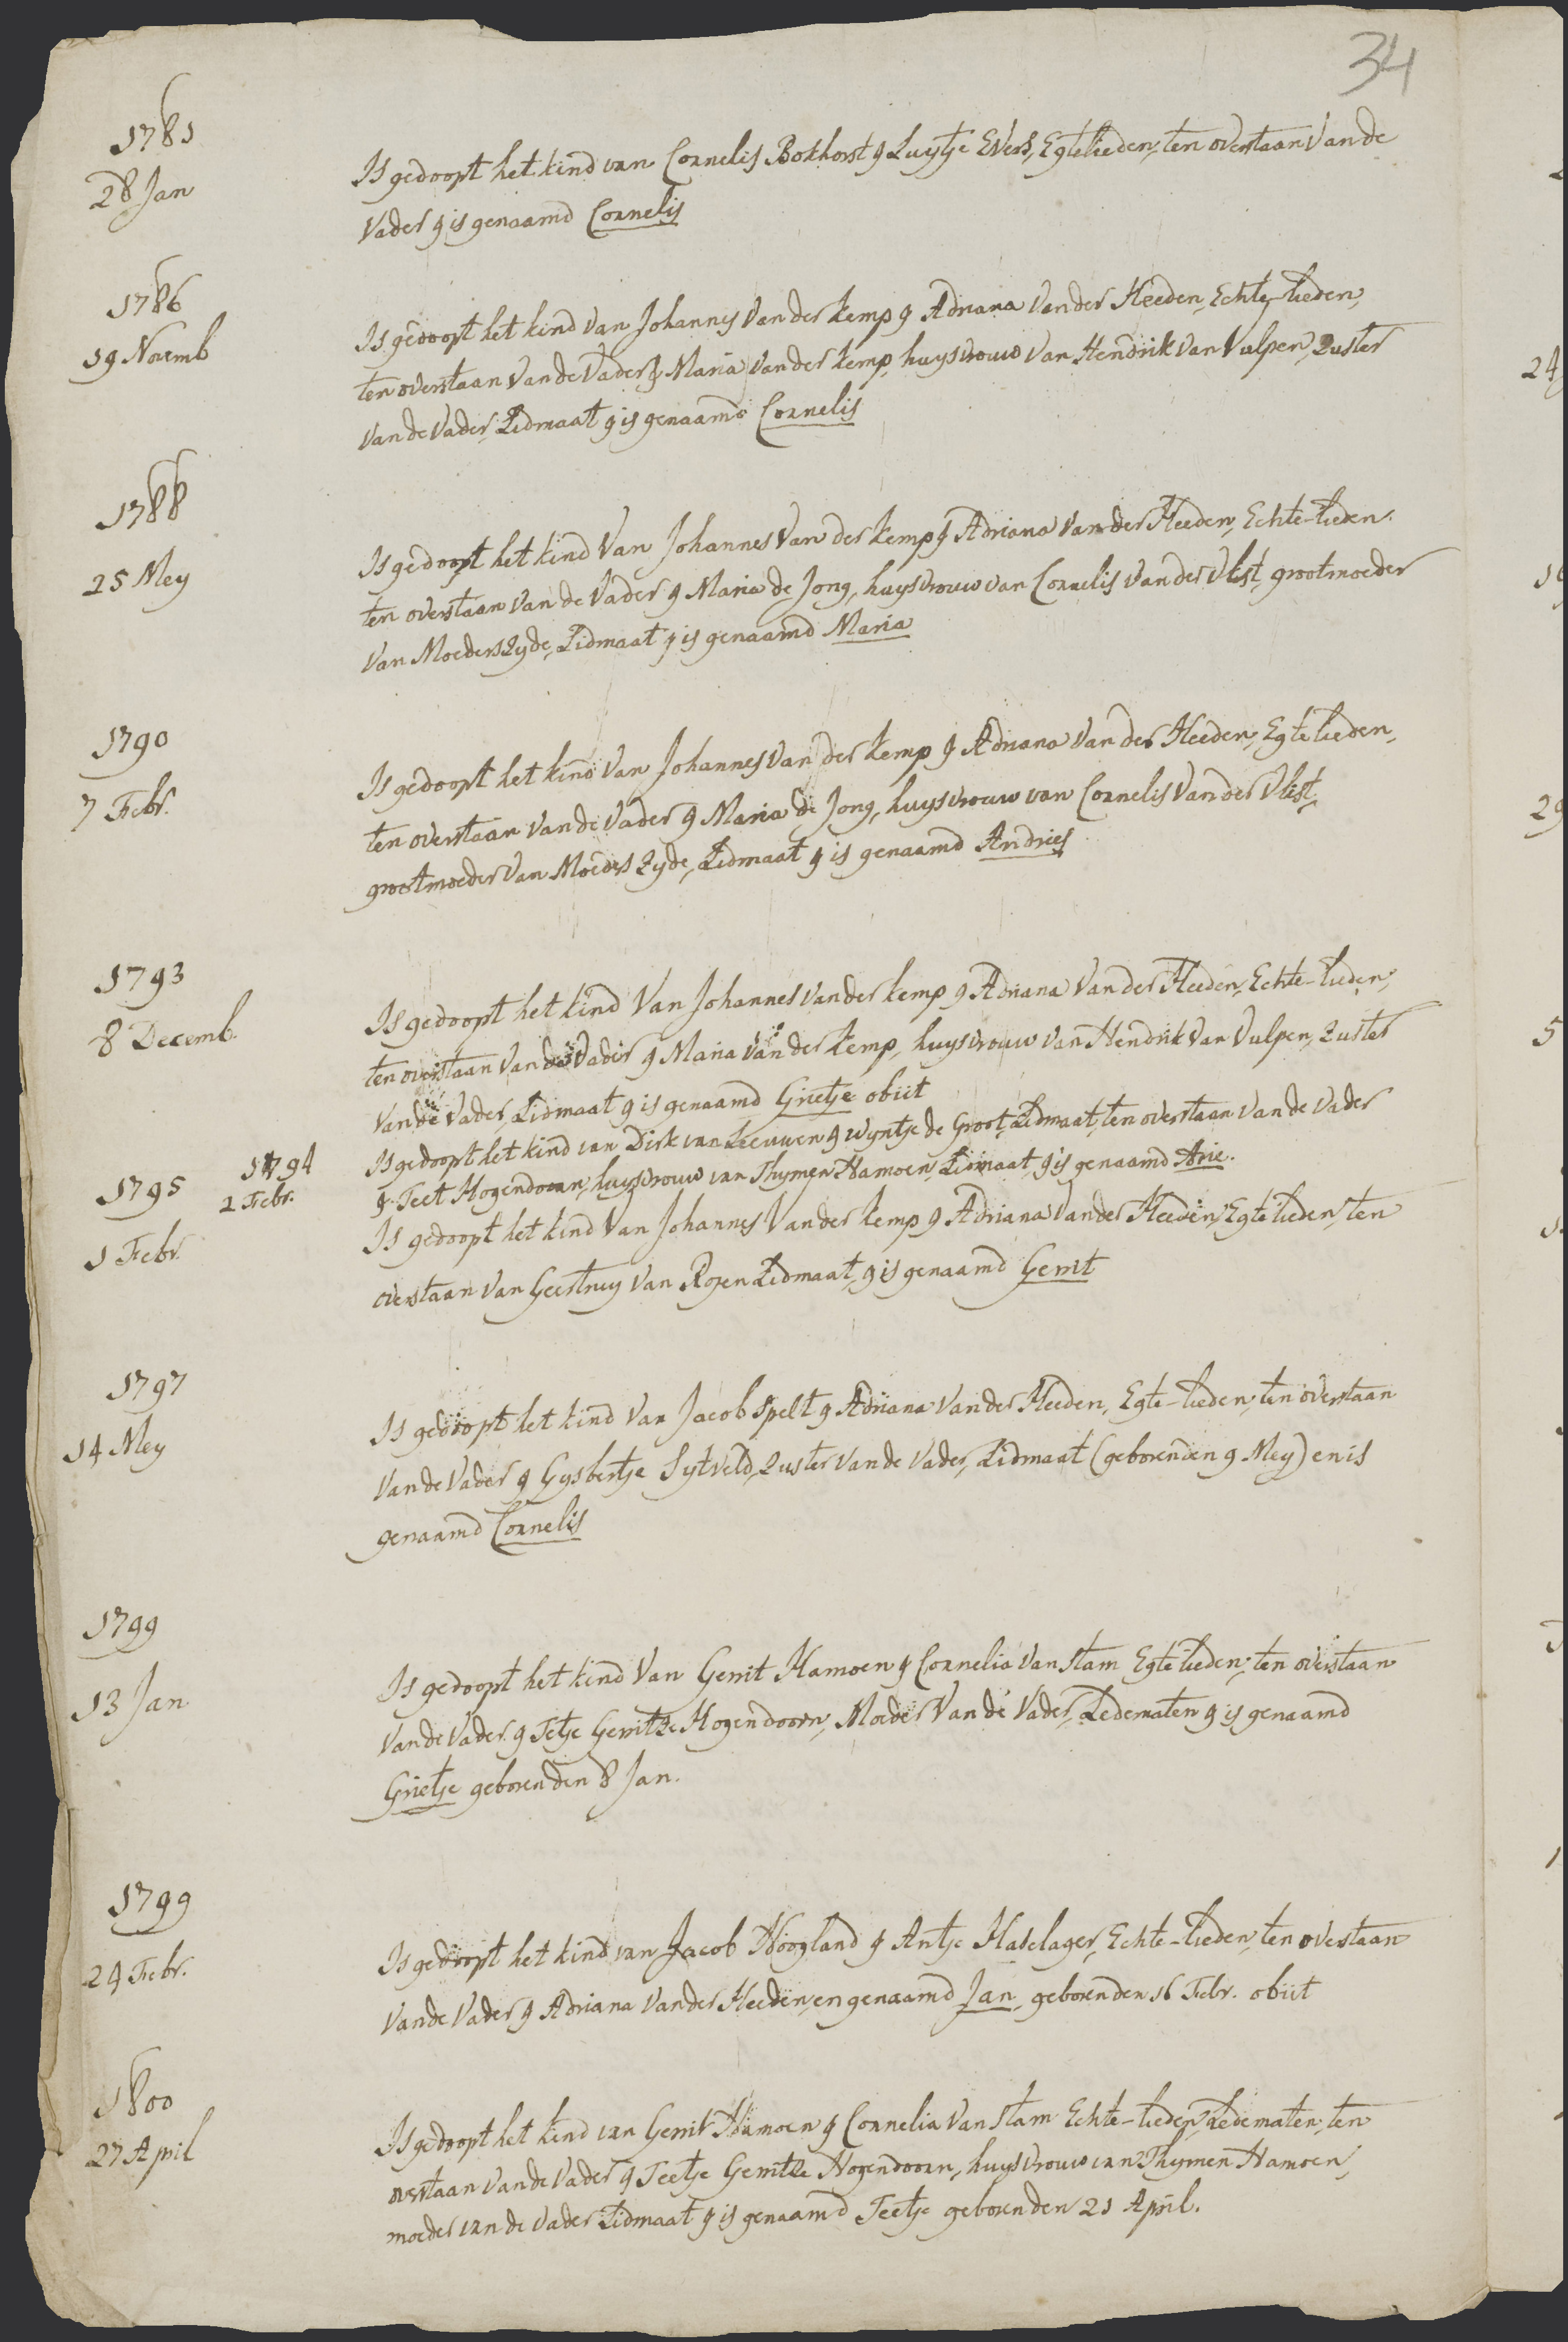 34
1781
28 Jan
Is gedoopt het kind van Cornelis Bokhorst & Luijtje Evers, Egtelieden, ten overstaan van de
Vader & is genaamd Cornelis
1786
19 Novemb
Is gedoopt het kind van Johannes van der Kemp & Adriana van der Heeden, Echte lieden,
ten overstaan van de Vader & Maria van der Kemp, huysvrouw van Hendrik van Vulpen, Zuster
van de Vader, Lidmaat & is genaamd Cornelis
1788
25 Mey
Is gedoopt het kind van Johannes van der Kemp & Adriana van der Heeden, Echte-lieden.
ten overstaan van de Vader & Maria de Jong, huysvrouw van Cornelis van der Vlist, grootmoeder
van Moeders Zyde, Lidmaat & is genaamd Maria
1790
7 Febr.
Is gedoopt het kind van Johannes van der Kemp & Adriana van der Heeden, Egte lieden,
ten overstaan van de Vader & Maria de Jong, huysvrouw van Cornelis van der Vlist,
grootmoeder van Moeders Zyde, Lidmaat & is genaamd Andries
1793
8 Decemb.
Is gedoopt het kind van Johannes van der Kemp & Adriana van der Heeden, Echte-lieden,
ten overstaan van de Vader & Maria van der Kemp, huysvrouw van Hendrik van Vulpen, Zuster
van de Vader, Lidmaat & is genaamd Grietje obiit
1794
2 Febr.
Is gedoopt het kind van Dirk van Leeuwen & Wyntje de Groot, Lidmaat, ten overstaan van de Vader
& Teet Hogendoorn, huysvrouw van Thymen Hamoen, Lidmaat, & is genaamd Arie.
1795
1 Febr.
Is gedoopt het kind van Johannes van der Kemp & Adriana van der Heeden, Egte lieden, ten
overstaan van Geertruy van Rozen Lidmaat, & is genaamd Gerrit
1797
14 Mey
Is gedoopt het kind van Jacob Spelt & Adriana van der Heeden, Egte-lieden, ten overstaan
van de Vader & Gysbertje Sytveld, Zuster van de Vader, Lidmaat (geboren den 9 Mey) en is
genaamd Cornelis
1799
13 Jan
Is gedoopt het kind van Gerrit Hamoen & Cornelia van Stam Egte lieden, ten overstaan
van de Vader & Tetje Gerritze Hogendoorn, Moeder van de Vader, Ledematen & is genaamd
Grietje geboren den 8 Jan.
1799
24 Febr.
Is gedoopt het kind van Jacob Hoogland & Antje Haselager, Echte-lieden, ten overstaan
van de Vader & Adriana van der Heeden, en genaamd Jan, geboren den 16 Febr. obiit
1800
27 April
Is gedoopt het kind van Gerrit Hamoen & Cornelia van Stam Echte-lieden, Ledematen, ten
overstaan van de Vader & Teetje Gerritze Hogendoorn, huysvrouw van Thymen Hamoen,
moeder van de Vader Lidmaat & is genaamd Teetje geboren den 21 April.